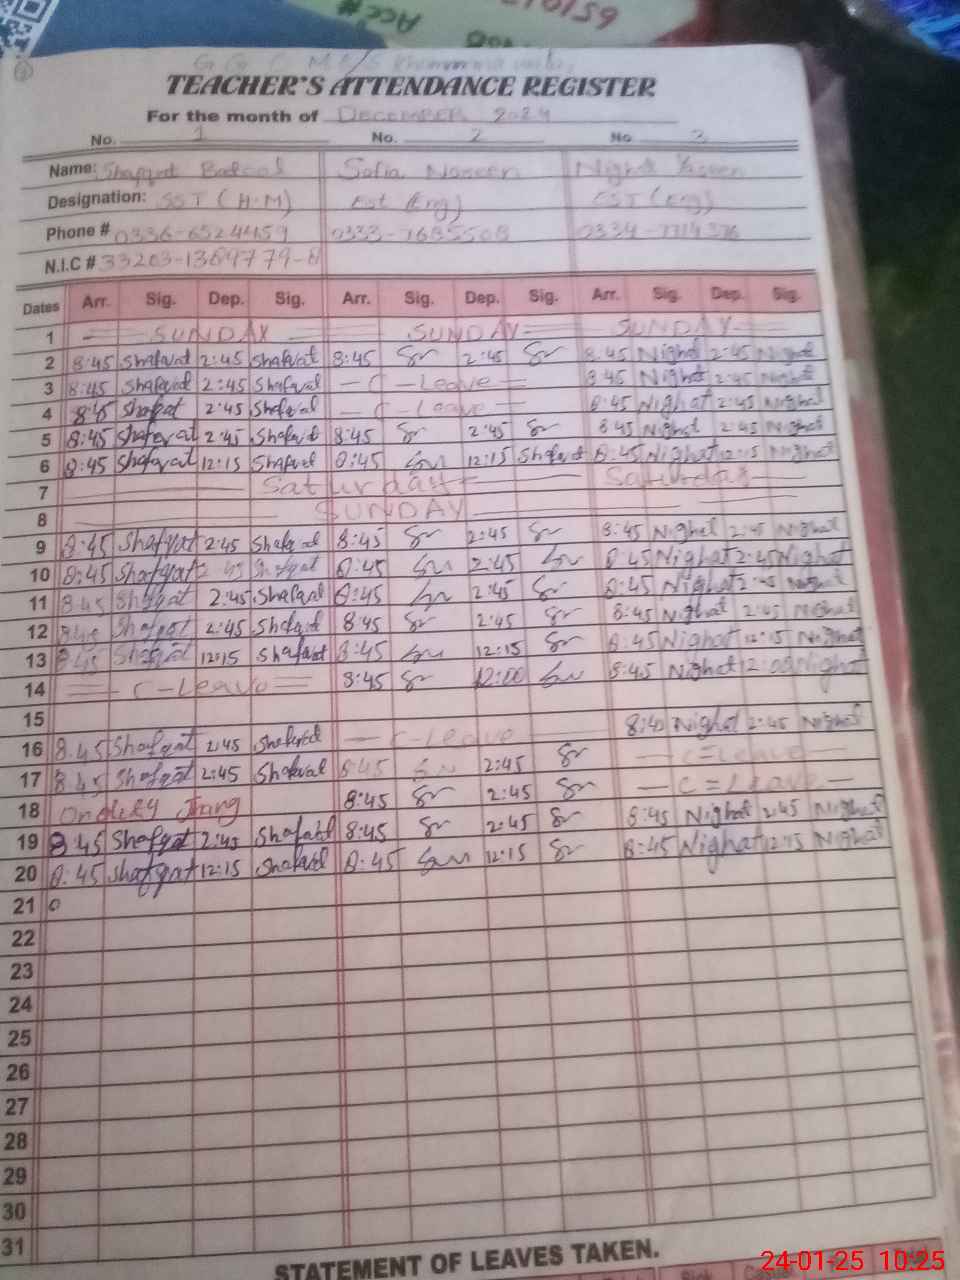 651015
Acc#
TEACHER'S ATTENDANCE REGISTER
For the month of DECEMBER 2024
No. 1 No. 2 No. 3
Name: Shafqat Sofia Noreen Nighat
Designation: SST (H.M) Est (Eng) EST (Eng)
Phone # 0336-6524459 0333-7685508
N.I.C # 33203-1369779-8
Dates Arr. Sig. Dep. Sig. Arr. Sig. Dep. Sig. Arr. Sig. Dep. Sig.
1 SUNDAY SUNDAY SUNDAY
2 8:45 Shafqat 2:45 Shafqat 8:45 Sr 2:45 Sr 8:45 Nighat 2:45 Nighat
3 8:45 Shafqat 2:45 Shafqat — C - Leave — 8:45 Nighat 2:45 Nighat
4 8:45 Shafqat 2:45 Shafqat — C - Leave — 8:45 Nighat 2:45 Nighat
5 8:45 Shafqat 2:45 Shafqat 8:45 Sr 2:45 Sr 8:45 Nighat 2:45 Nighat
6 8:45 Shafqat 12:15 Shafqat 8:45 Sr 12:15 Shafqat 8:45 Nighat 12:15 Nighat
7 Saturday Saturday
8 SUNDAY
9 8:45 Shafqat 2:45 Shafqat 8:45 Sr 2:45 Sr 8:45 Nighat 2:45 Nighat
10 8:45 Shafqat 2:45 Shafqat 8:45 Sr 2:45 Sr 8:45 Nighat 2:45 Nighat
11 8:45 Shafqat 2:45 Shafqat 8:45 Sr 2:45 Sr 8:45 Nighat 2:45 Nighat
12 8:45 Shafqat 2:45 Shafqat 8:45 Sr 2:45 Sr 8:45 Nighat 2:45 Nighat
13 8:45 Shafqat 12:15 Shafqat 8:45 Sr 12:15 Sr 8:45 Nighat 12:15 Nighat
14 C - Leave 8:45 Sr 12:00 Sr 8:45 Nighat 12:00 Nighat
15
16 8:45 Shafqat 2:45 Shafqat — C Leave 8:45 Nighat 2:45 Nighat
17 8:45 Shafqat 2:45 Shafqat 8:45 Sr 2:45 Sr — C = Leave —
18 Jhang 8:45 Sr 2:45 Sr — C = Leave
19 8:45 Shafqat 2:45 Shafqat 8:45 Sr 2:45 Sr 8:45 Nighat 2:45 Nighat
20 8:45 Shafqat 12:15 Shafqat 8:45 Sr 12:15 Sr 8:45 Nighat 12:15 Nighat
21
22
23
24
25
26
27
28
29
30
31
STATEMENT OF LEAVES TAKEN.
24-01-25 10:25